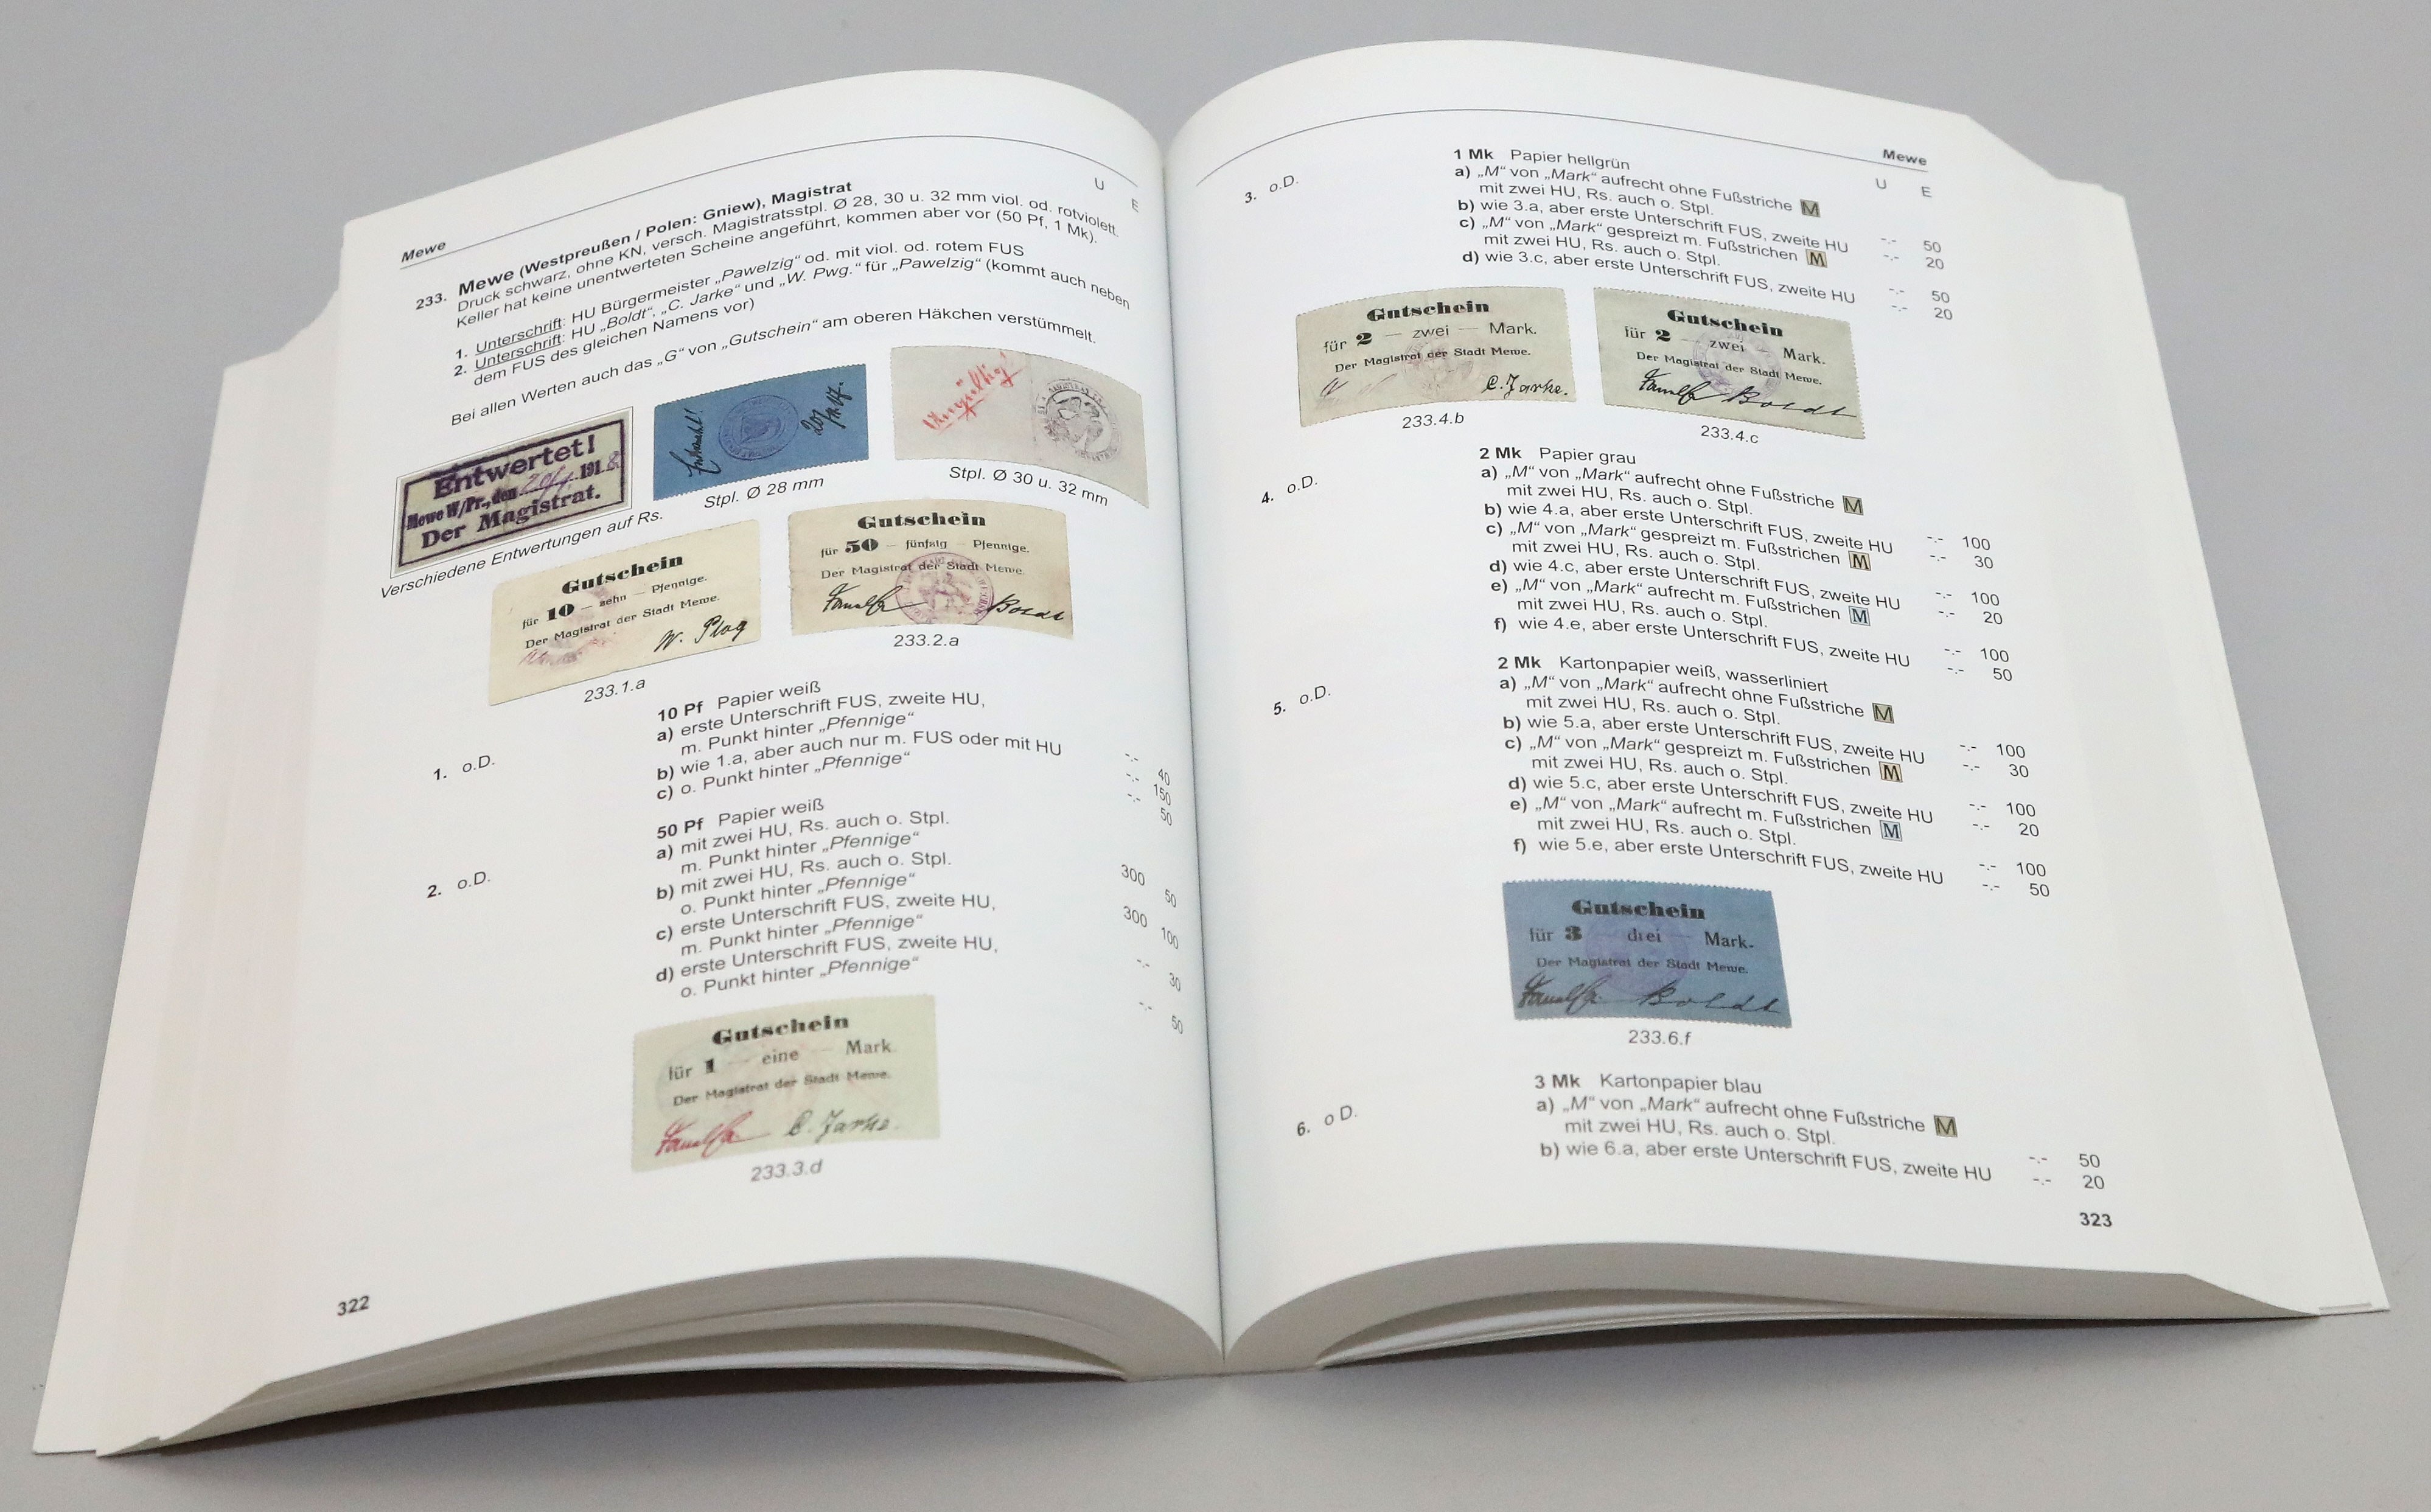 Mewe
U E
233. Mewe (Westpreußen / Polen: Gniew), Magistrat
Druck schwarz, ohne KN, versch. Magistratsstpl. Ø 28, 30 u. 32 mm viol. od. rotviolett.
Keller hat keine unentwerteten Scheine angeführt, kommen aber vor (50 Pf, 1 Mk).
1. Unterschrift: HU Bürgermeister „Pawelzig“ od. mit viol. od. rotem FUS
2. Unterschrift: HU „Boldt“, „C. Jarke“ und „W. Pwg.“ für „Pawelzig“ (kommt auch neben
dem FUS des gleichen Namens vor)
Bei allen Werten auch das „G“ von „Gutschein“ am oberen Häkchen verstümmelt.
Entwertet!
Mewe W/Pr., den 191 8
Der Magistrat.
Ungültig!
Verschiedene Entwertungen auf Rs.
Stpl. Ø 28 mm
Stpl. Ø 30 u. 32 mm
Gutschein
für 10 — zehn — Pfennige.
Der Magistrat der Stadt Mewe.
233.1.a
Gutschein
für 50 — fünfzig — Pfennige.
Der Magistrat der Stadt Mewe.
Boldt
233.2.a
1. o.D.
10 Pf Papier weiß
a) erste Unterschrift FUS, zweite HU,
m. Punkt hinter „Pfennige“ -.- 40
b) wie 1.a, aber auch nur m. FUS oder mit HU -.- 150
c) o. Punkt hinter „Pfennige“ -.- 50
2. o.D.
50 Pf Papier weiß
a) mit zwei HU, Rs. auch o. Stpl.
m. Punkt hinter „Pfennige“ 300 50
b) mit zwei HU, Rs. auch o. Stpl.
o. Punkt hinter „Pfennige“ 300 100
c) erste Unterschrift FUS, zweite HU,
m. Punkt hinter „Pfennige“ -.- 30
d) erste Unterschrift FUS, zweite HU,
o. Punkt hinter „Pfennige“ -.- 50
Gutschein
für 1 — eine — Mark.
Der Magistrat der Stadt Mewe.
C. Jarke.
233.3.d
322
Mewe
U E
3. o.D.
1 Mk Papier hellgrün
a) „M“ von „Mark“ aufrecht ohne Fußstriche M
mit zwei HU, Rs. auch o. Stpl. -.- 50
b) wie 3.a, aber erste Unterschrift FUS, zweite HU -.- 20
c) „M“ von „Mark“ gespreizt m. Fußstrichen M
mit zwei HU, Rs. auch o. Stpl. -.- 50
d) wie 3.c, aber erste Unterschrift FUS, zweite HU -.- 20
Gutschein
für 2 — zwei — Mark.
Der Magistrat der Stadt Mewe.
C. Jarke.
233.4.b
Gutschein
für 2 — zwei — Mark.
Der Magistrat der Stadt Mewe.
Boldt
233.4.c
4. o.D.
2 Mk Papier grau
a) „M“ von „Mark“ aufrecht ohne Fußstriche M
mit zwei HU, Rs. auch o. Stpl. -.- 100
b) wie 4.a, aber erste Unterschrift FUS, zweite HU -.- 30
c) „M“ von „Mark“ gespreizt m. Fußstrichen M
mit zwei HU, Rs. auch o. Stpl. -.- 100
d) wie 4.c, aber erste Unterschrift FUS, zweite HU -.- 20
e) „M“ von „Mark“ aufrecht m. Fußstrichen M
mit zwei HU, Rs. auch o. Stpl. -.- 100
f) wie 4.e, aber erste Unterschrift FUS, zweite HU -.- 50
5. o.D.
2 Mk Kartonpapier weiß, wasserliniert
a) „M“ von „Mark“ aufrecht ohne Fußstriche M
mit zwei HU, Rs. auch o. Stpl. -.- 100
b) wie 5.a, aber erste Unterschrift FUS, zweite HU -.- 30
c) „M“ von „Mark“ gespreizt m. Fußstrichen M
mit zwei HU, Rs. auch o. Stpl. -.- 100
d) wie 5.c, aber erste Unterschrift FUS, zweite HU -.- 20
e) „M“ von „Mark“ aufrecht m. Fußstrichen M
mit zwei HU, Rs. auch o. Stpl. -.- 100
f) wie 5.e, aber erste Unterschrift FUS, zweite HU -.- 50
Gutschein
für 3 — drei — Mark.
Der Magistrat der Stadt Mewe.
Boldt
233.6.f
6. o D.
3 Mk Kartonpapier blau
a) „M“ von „Mark“ aufrecht ohne Fußstriche M
mit zwei HU, Rs. auch o. Stpl. -.- 50
b) wie 6.a, aber erste Unterschrift FUS, zweite HU -.- 20
323